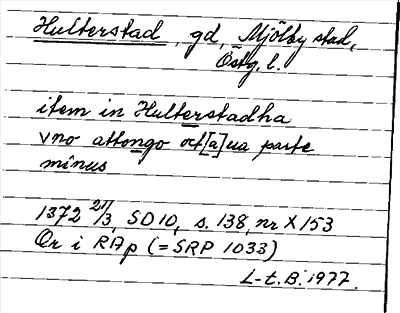 Hulterstad, gd, Mjölby stad,
Östg. l.
item in Hulterstadha
vno attongo oct[a]ua parte
minus
1372 21/3, SD 10, s. 138, nr X 153
Or i RAp (= SRP 1033)
L-t. B. 1977.